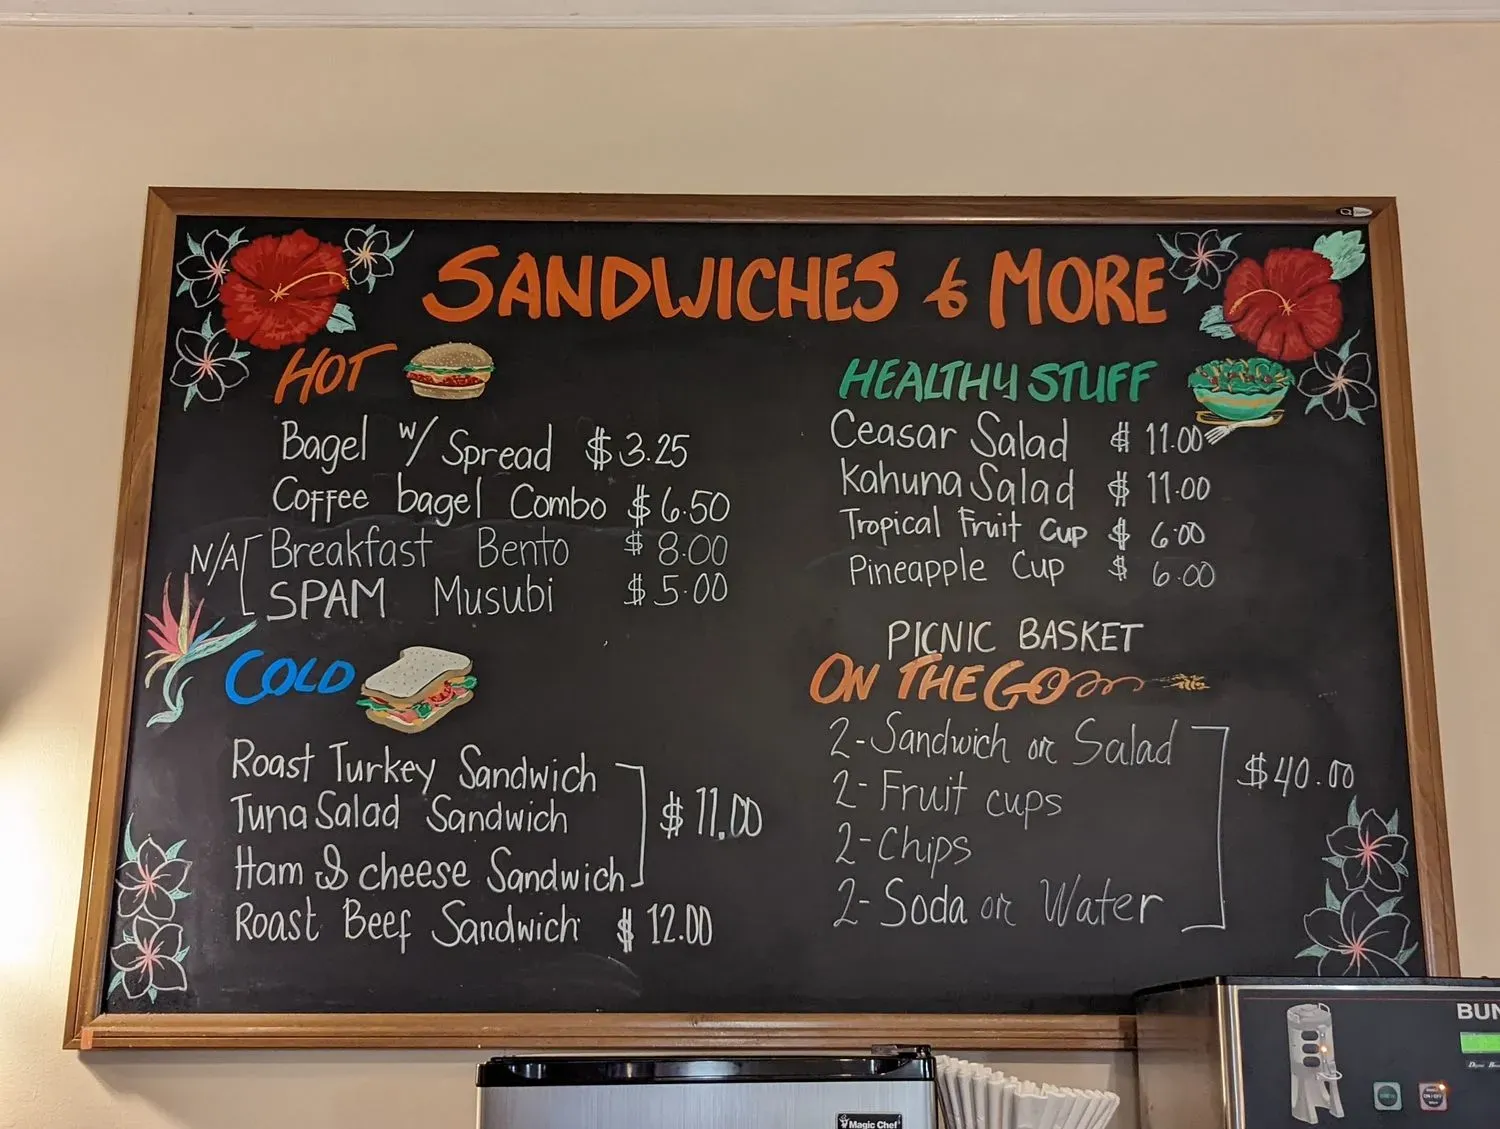 SANDWICHES & MORE
HOT
Bagel w/ Spread $3.25
Coffee bagel Combo $6.50
N/A
Breakfast Bento $8.00
SPAM Musubi $5.00
COLD
Roast Turkey Sandwich
Tuna Salad Sandwich
Ham & cheese Sandwich
$11.00
Roast Beef Sandwich $12.00
HEALTHY STUFF
Ceasar Salad $11.00
Kahuna Salad $11.00
Tropical Fruit Cup $6.00
Pineapple Cup $6.00
PICNIC BASKET
ON THE GO
2-Sandwich or Salad
2-Fruit cups
2-Chips
2-Soda or Water
$40.00
Magic Chef
BUN